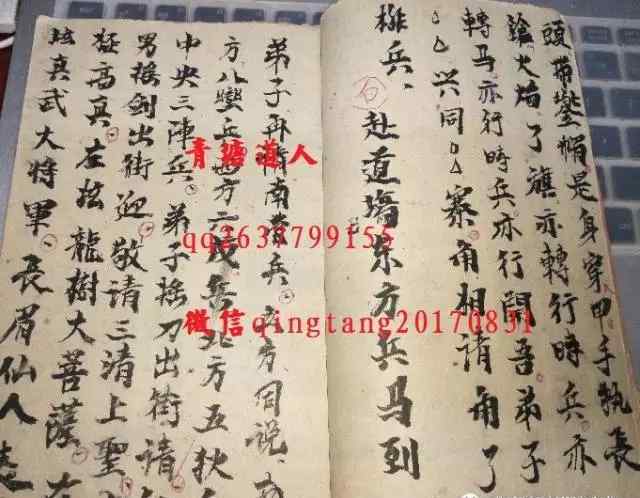 頭帶鍪帽是身穿甲手執長
鎗火焰了旗亦轉行時兵亦
轉马亦行時兵亦行開吾弟子
兴同 寨角相請角了
排兵、
赴道塲东方兵马到
弟子再請南 兵 方同說
方八蠻兵西方 戎兵北方五狄
中央三陣兵 弟子搖刀出街請
男搖劍出街迎 敬請三清上聖
高真左 龍樹大菩薩 右
真武大将軍 長眉仙人
青塘道人
qq2637799155
微信qingtang20170831